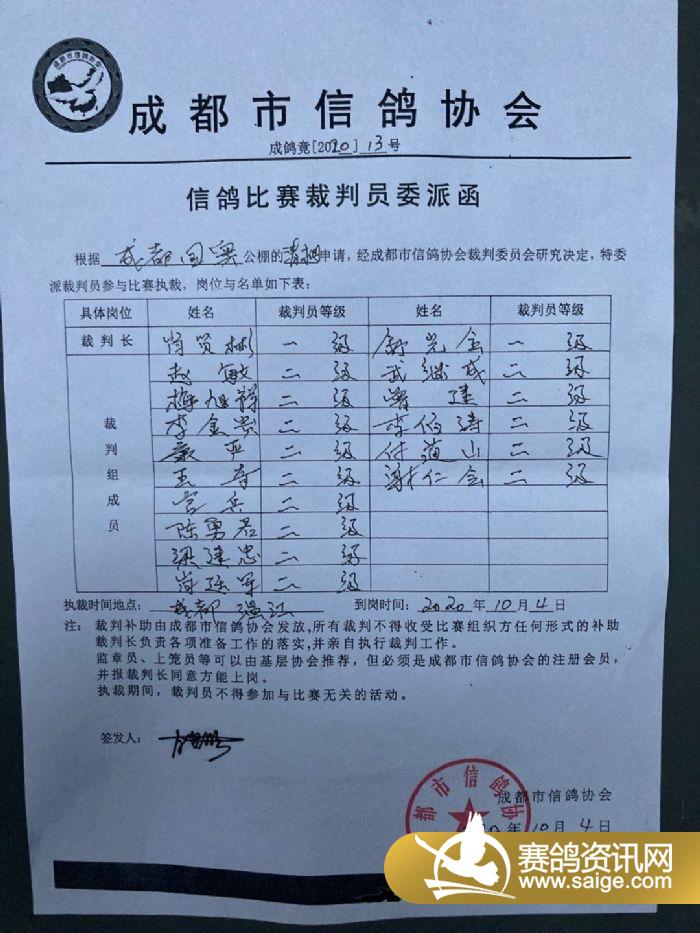 成都市信鸽协会
成都市信鸽协会
成鸽竞[2020]13号
信鸽比赛裁判员委派函
根据 成都国奥 公棚的 申请，经成都市信鸽协会裁判委员会研究决定，特委
派裁判员参与比赛执裁，岗位与名单如下表：
具体岗位 姓名 裁判员等级 姓名 裁判员等级
裁判长 贤彬 一级 舒光金 一级
裁判组成员
赵敏 二级 武继成 二级
梅旭辉 二级 建 二级
李金贵 二级 李伯涛 二级
严 二级 付道山 二级
王奇 二级 谢仁全 二级
官兵 二级
陈勇君 二级
梁建忠 二级
军 二级
执裁时间地点： 成都 温江 到岗时间：2020年10月4日
注： 裁判补助由成都市信鸽协会发放，所有裁判不得收受比赛组织方任何形式的补助
裁判长负责各项准备工作的落实，并亲自执行裁判工作。
监章员、上笼员等可以由基层协会推荐，但必须是成都市信鸽协会的注册会员，
并报裁判长同意方能上岗。
执裁期间，裁判员不得参加与比赛无关的活动。
签发人：
都市信鸽协
成都市信鸽协会
年10月4日
赛鸽资讯网
www.saige.com